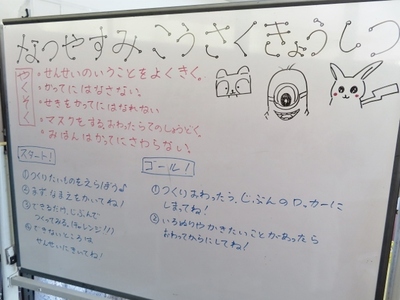 なつやすみ こうさくきょうしつ
やくそく
・せんせいのいうことをよくきく。
・かってにはなさない。
・せきをかってにはなれない
・マスクをする。おわったらてのしょうどく。
・みほんはかってにさわらない。
スタート!
①つくりたいものをえらぼう♪
②まず、なまえをかいてね!
③できるだけ、じぶんで
つくってみる。(チャレンジ!!)
④できないところは
せんせいにきいてね!
ゴール!
①つくりおわったら、じぶんのロッカーに
しまってね!
②いろぬりやかきたいことがあったら
おわってからにしてね!